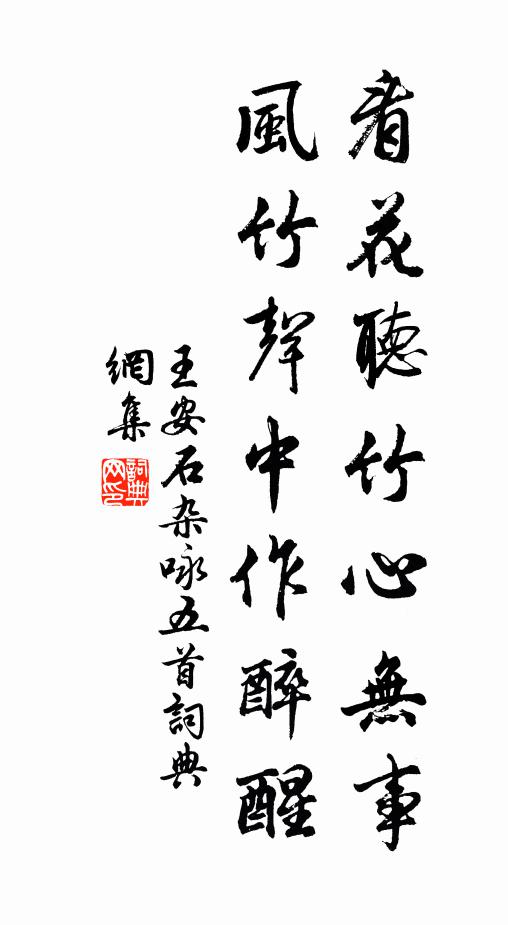 看花聽竹心無事
風竹聲中作醉醒
王安石杂咏五首詞典
網集
詞典網印